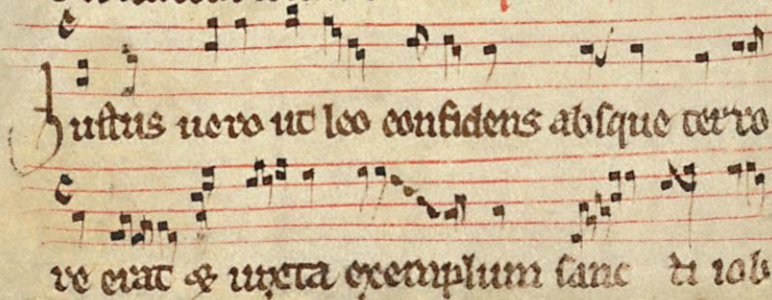 Iustus uero ut leo confidens absque terro
re erat & iuxta exemplum sanc ti iob